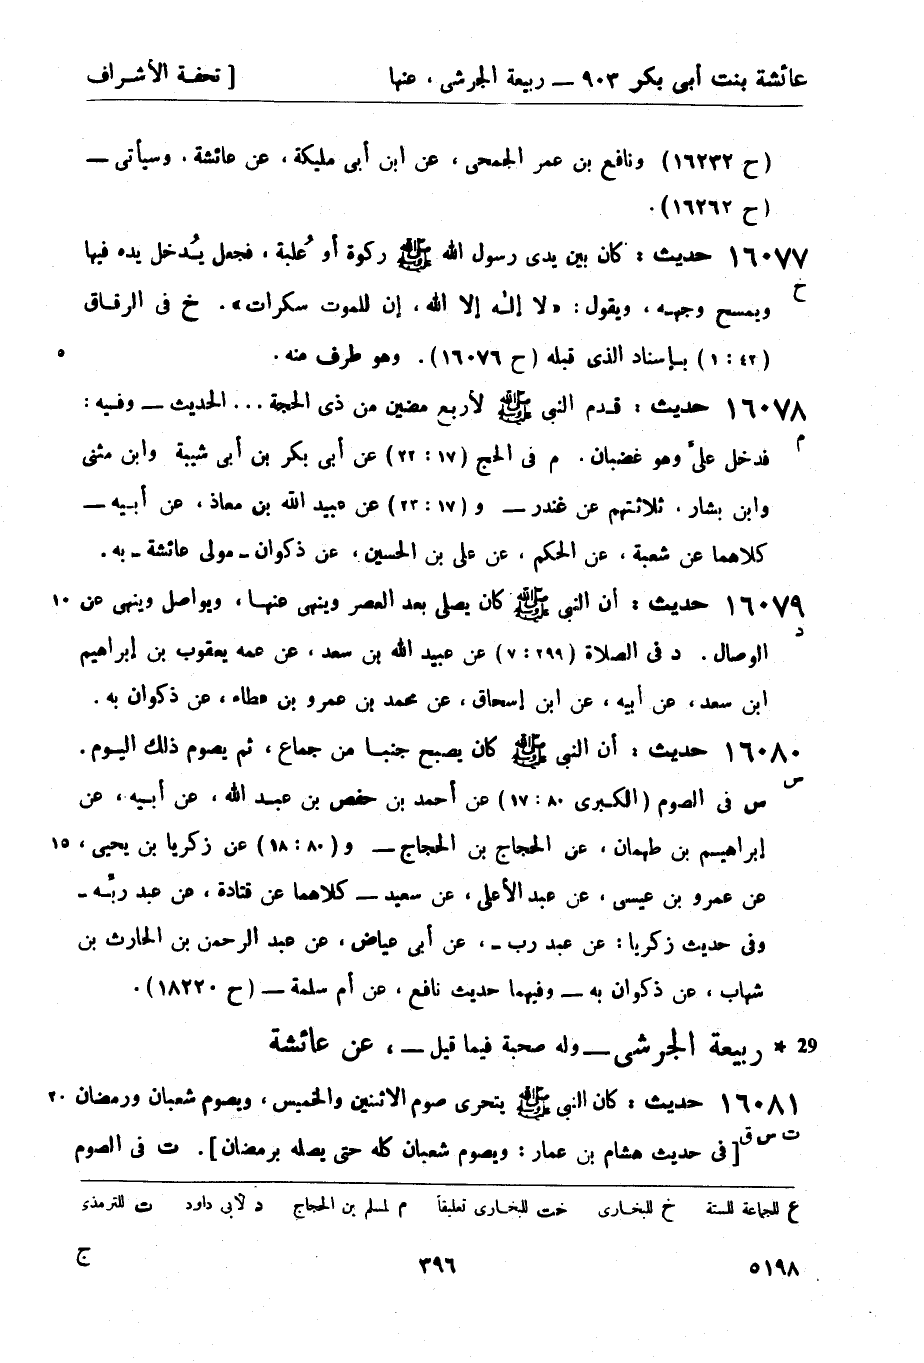 عائشة بنت أبى بكر ٩٠٣ ـــ ربيعة الجرشى ، عنها [ تحفة الأشراف
(ح ١٦٢٣٢) ونافع بن عمر الجمحى ، عن ابن أبى مليكة ، عن عائشة . وسيأتى ـــ
(ح ١٦٢٦٢) .
١٦٠٧٧ حديث : كان بين يدى رسول الله ﷺ ركوة أو عُلبة ، فجعل يُدخل يده فيها
خ
ويمسح وجهه ، ويقول : «لا إله إلا الله ، إن للموت سكرات» . خ فى الرقاق
(٤٢ : ١) بإسناد الذى قبله (ح ١٦٠٧٦) . وهو طرف منه . ٥
١٦٠٧٨ حديث : قدم النبى ﷺ لأربع مضين من ذى الحجة ... الحديث ـــ وفيه :
م
فدخل علىَّ وهو غضبان . م فى الحج (١٧ : ٢٢) عن أبى بكر بن أبى شيبة وابن مثنى
وابن بشار ، ثلاثتهم عن غندر ـــ و (١٧ : ٢٣) عن عبيد الله بن معاذ ، عن أبيه ـــ
كلاهما عن شعبة ، عن الحكم ، عن على بن الحسين ، عن ذكوان ـ مولى عائشة ـ به .
١٦٠٧٩ حديث : أن النبى ﷺ كان يصلى بعد العصر وينهى عنها ، ويواصل وينهى عن ١٠
د
الوصال . د فى الصلاة (٢٩٩ : ٧) عن عبيد الله بن سعد ، عن عمه يعقوب بن إبراهيم
ابن سعد ، عن أبيه ، عن ابن إسحاق ، عن محمد بن عمرو بن عطاء ، عن ذكوان به .
١٦٠٨٠ حديث : أن النبى ﷺ كان يصبح جنبا من جماع ، ثم يصوم ذلك اليوم .
س
س فى الصوم (الكبرى ٨٠ : ١٧) عن أحمد بن حفص بن عبد الله ، عن أبيه ، عن
إبراهيم بن طهمان ، عن الحجاج بن الحجاج ـــ و (٨٠ : ١٨) عن زكريا بن يحيى ، ١٥
عن عمرو بن عيسى ، عن عبد الأعلى ، عن سعيد ـــ كلاهما عن قتادة ، عن عبد ربّه ـ
وفى حديث زكريا : عن عبد رب ـ ، عن أبى عياض ، عن عبد الرحمن بن الحارث بن
شهاب ، عن ذكوان به ـــ وفيهما حديث نافع ، عن أم سلمة ـــ (ح ١٨٢٢٠) .
29 * ربيعة الجرشى ـــ وله صحبة فيما قيل ـــ ، عن عائشة
١٦٠٨١ حديث : كان النبى ﷺ يتحرى صوم الاثنين والخميس ، ويصوم شعبان ورمضان ٢٠
ت س ق
[فى حديث هشام بن عمار : ويصوم شعبان كله حتى يصله برمضان] . ت فى الصوم
ع للجماعة للستة خ للبخارى خت للبخارى تعليقاً م لمسلم بن الحجاج د لأبى داود ت للترمذى
٥١٩٨ ٣٩٦ ج